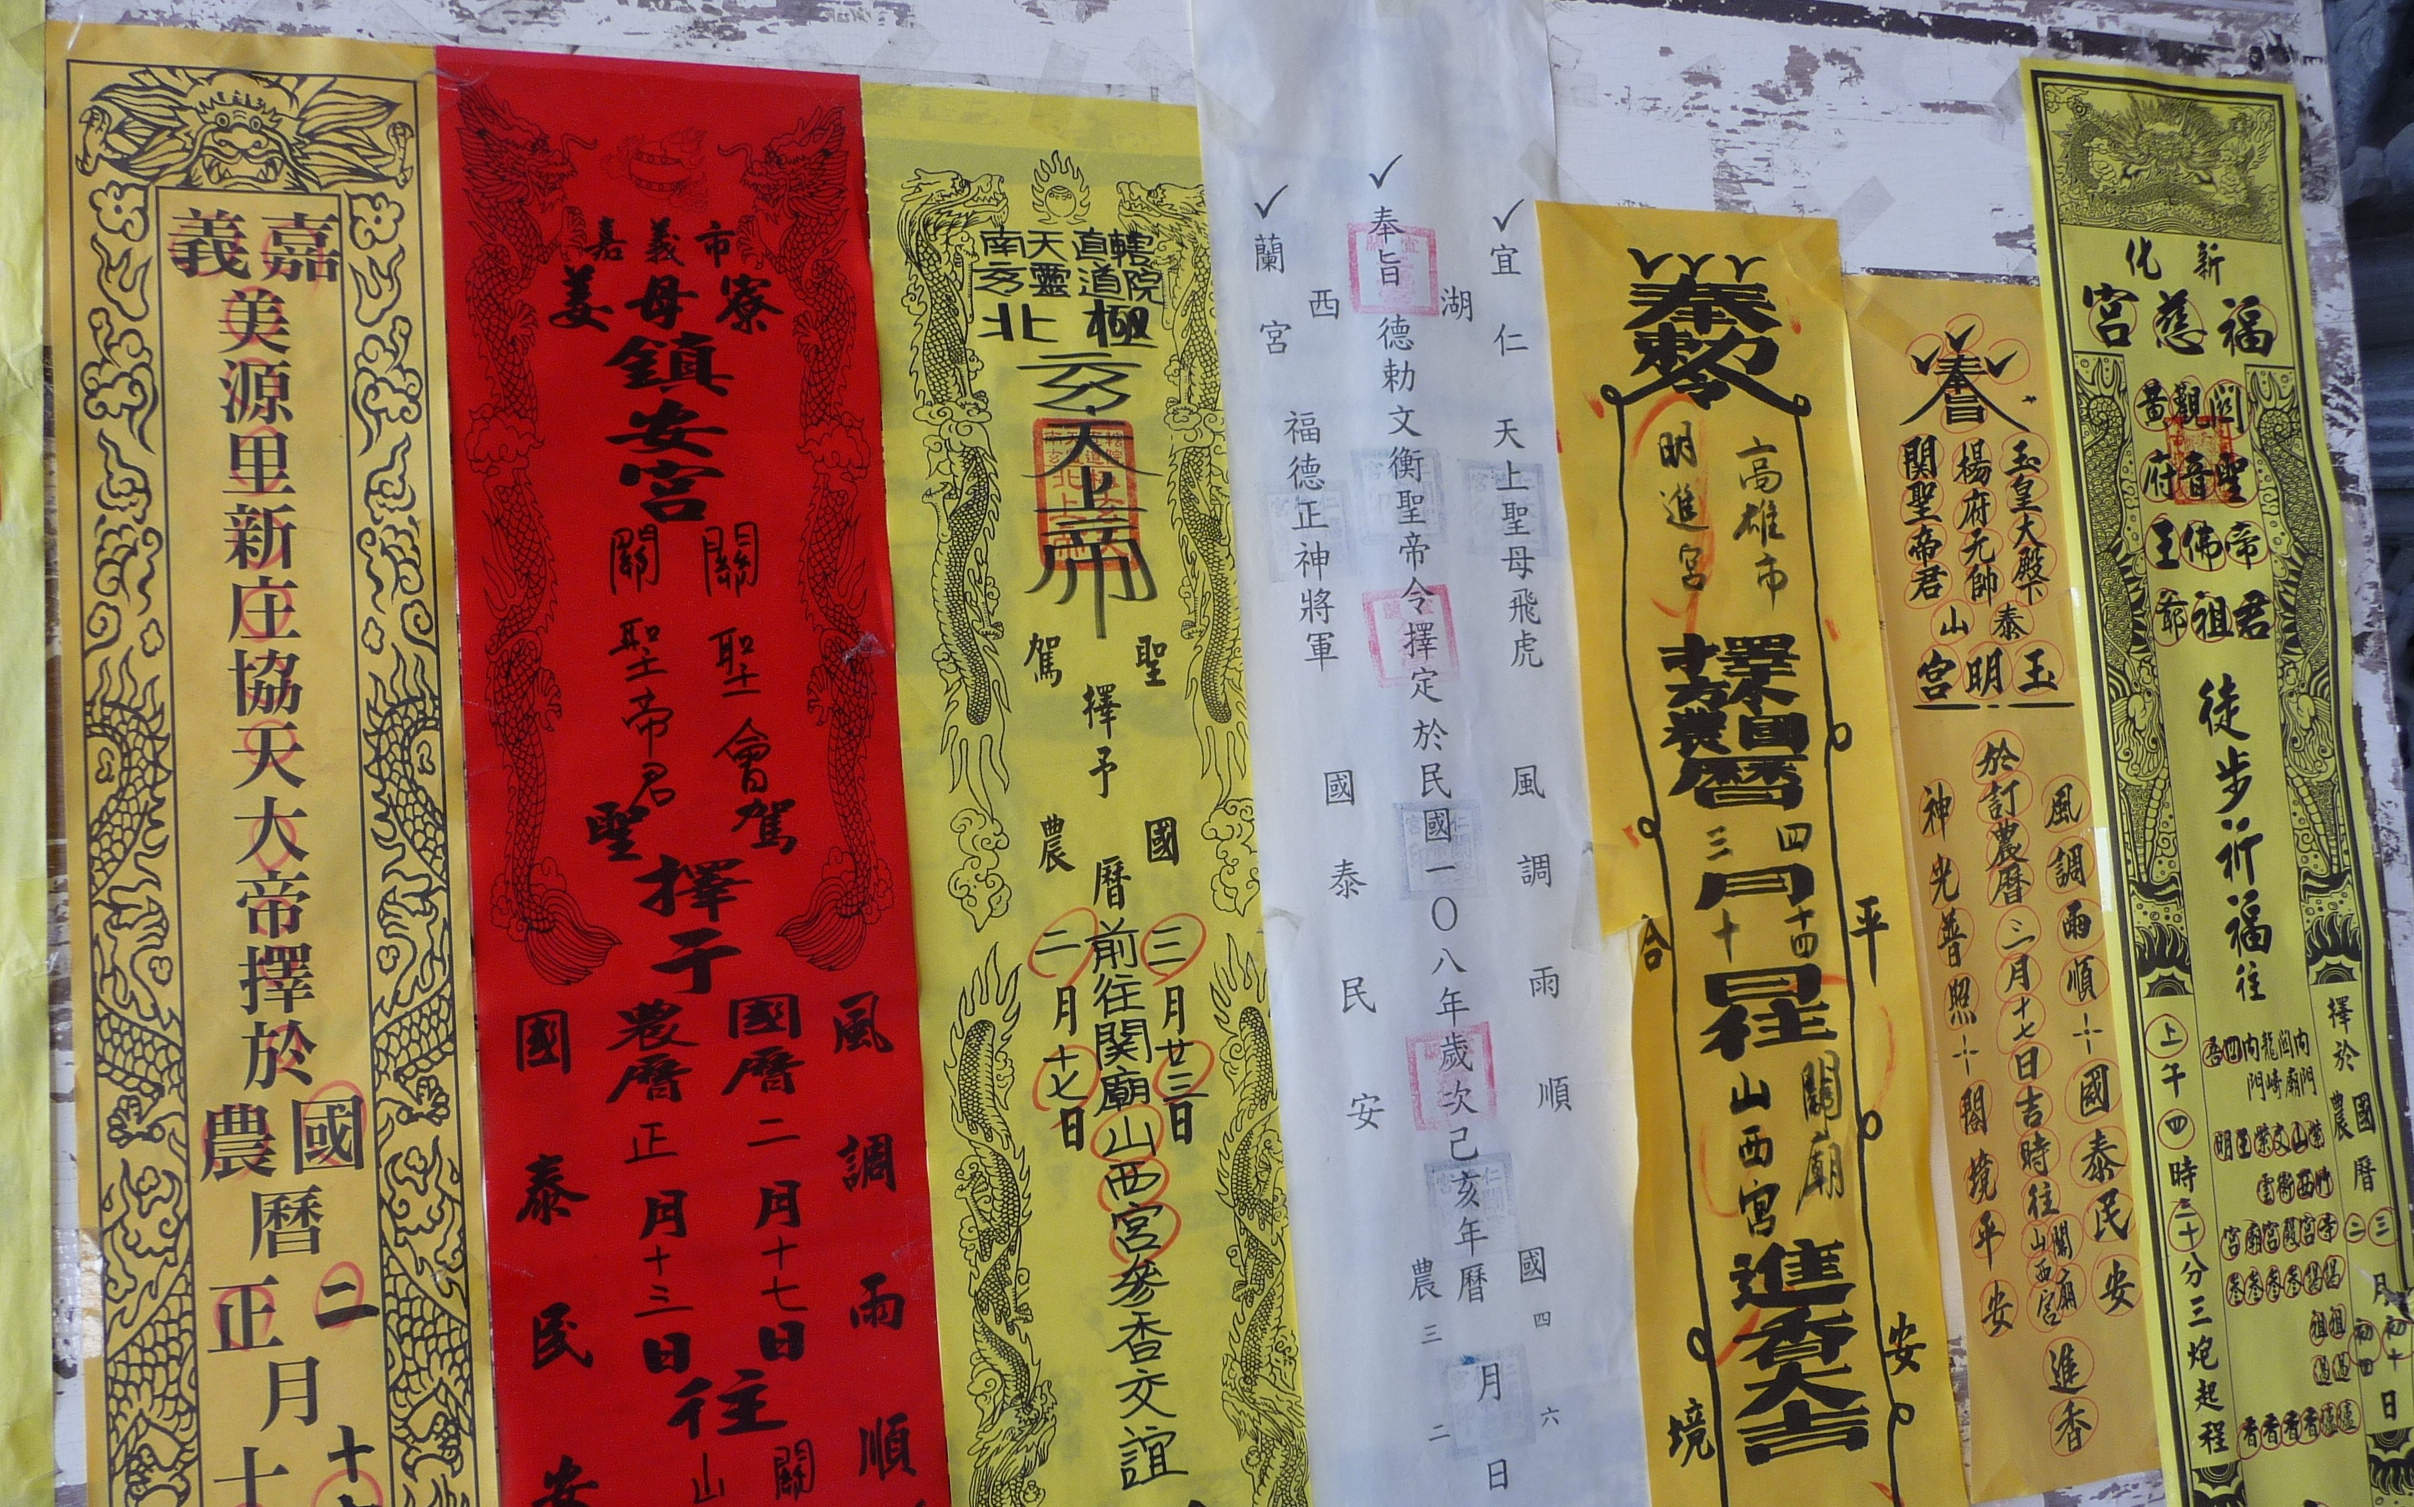 嘉義
美源里新庄協天大帝擇於
國農曆
二月十
正月十
嘉義市
姜母寮
鎮安宮
關聖帝君
關聖會
聖駕
擇于
國曆二月十七日
農曆正月十三日
往
關
山
風調雨順
國泰民安
南天直轄
玄靈道院
北極
玄天上帝
聖駕
擇予
國農曆
三月廿三日
二月十七日
前往關廟山西宮參香交誼
奉旨
宜蘭
湖西
仁宮
德勅文衡聖帝令擇定於民國一〇八年歲次己亥年
國農曆
四三月六二日
天上聖母飛虎
福德正神將軍
風調雨順
國泰民安
奉勅
高雄市
明進宮
擇於國農曆
四月十四日
三月十日
往
關廟
山西宮
進香大吉
合境平安
奉旨
玉皇大殿下
楊府元帥
關聖帝君
泰山
玉明宮
於訂農曆三月十七日吉時往關廟山西宮進香
風調雨順國泰民安
神光普照閤境平安
新化
福慈宮
關聖帝君
觀音佛祖
黃府王爺
徒步祈福往
擇於國農曆
三月初十日
二月初四日
上午四時三十分三炮起程